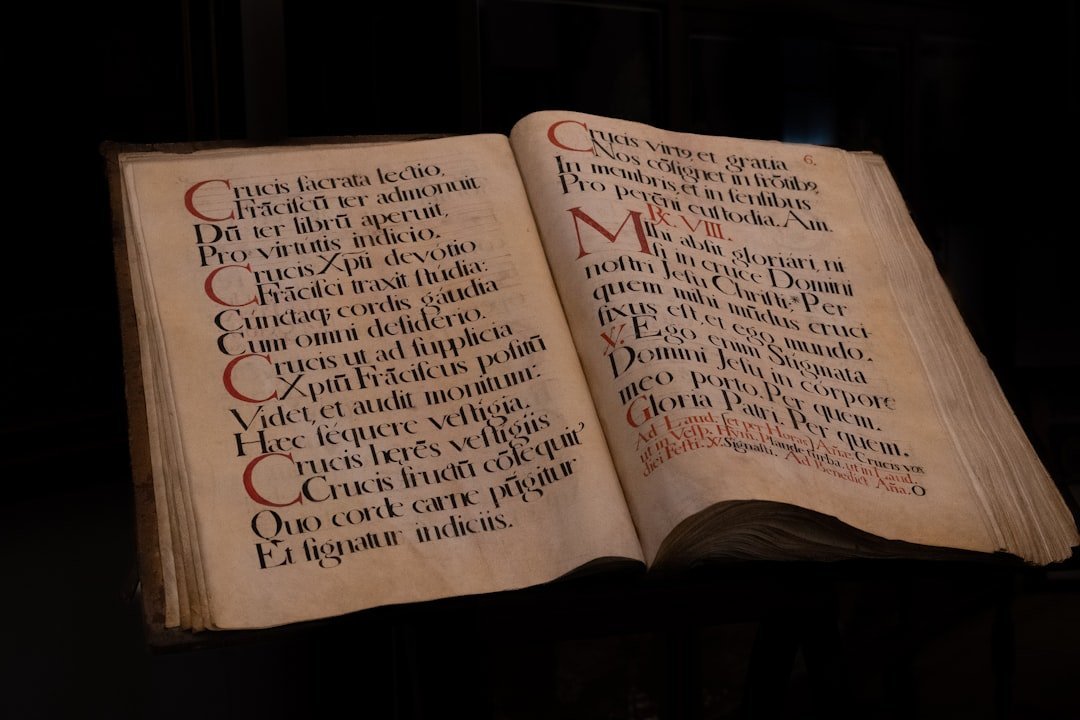 Crucis ſacrata lectio,
Frāciſcū ter admonuit
Dū ter librū aperuit,
Pro virtútis indicio.
Crucis Xpti devótio
Frāciſci traxit ſtúdia:
Cúnctaq; cordis gáudia
Cum omni deſidério.
Crucis ut ad ſupplicia
Xptū Frāciſcus poſitū
Videt, et audit monitum:
Hæc ſéquere veſtígia.
Crucis herēs veſtigiis
Crucis fructū cōſequit᷑
Quo corde carne pūgitur
Et ſignatur indiciis.
6.
Crucis virt9, et gratia
Nos cōſignet in frōtib9,
In membris, et in ſenſibus
Pro perēni cuſtodia. Am.
℟c. VIII.
Mihi abſit gloriári, ni
ſi in cruce Domini
noſtri Jeſu Chriſti;* Per
quem mihi mūdus cruci-
fixus eſt, et ego mundo.
℣. Ego enim Stigmata
Domini Jeſu in córpore
meo porto. Per quem.
Gloria Patri. Per quem.
Ad Laud. et per Horas Añæ Crucis vox
ut in Veſp. Hym. Plaude turba, ut in Laud.
dici Feſti. ℣. Signaſti. Ad Benedict. Aña. O